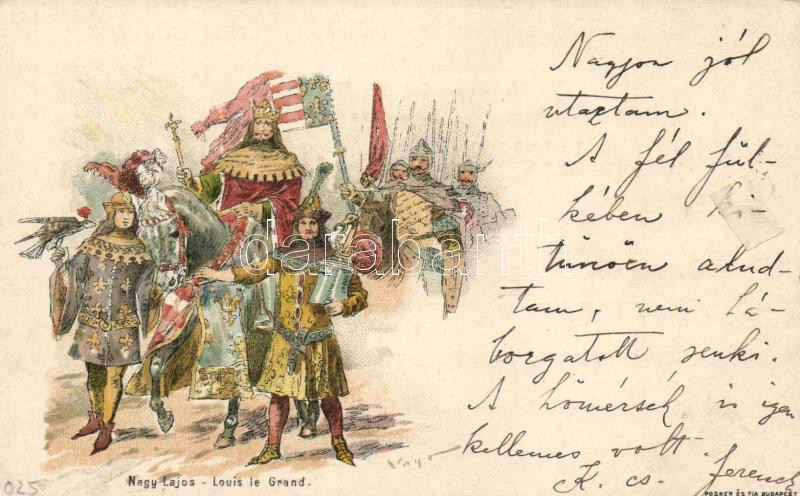 Nagyon jól
utaztam.
A fél fül-
kében ki-
tünöen alud-
tam, nem há-
borgatott senki.
A hőmérsék is igen
kellemes volt.
K. cs. Ferencz
Nagy Lajos - Louis le Grand.
POSNER ÉS FIA BUDAPEST
025
darabanth